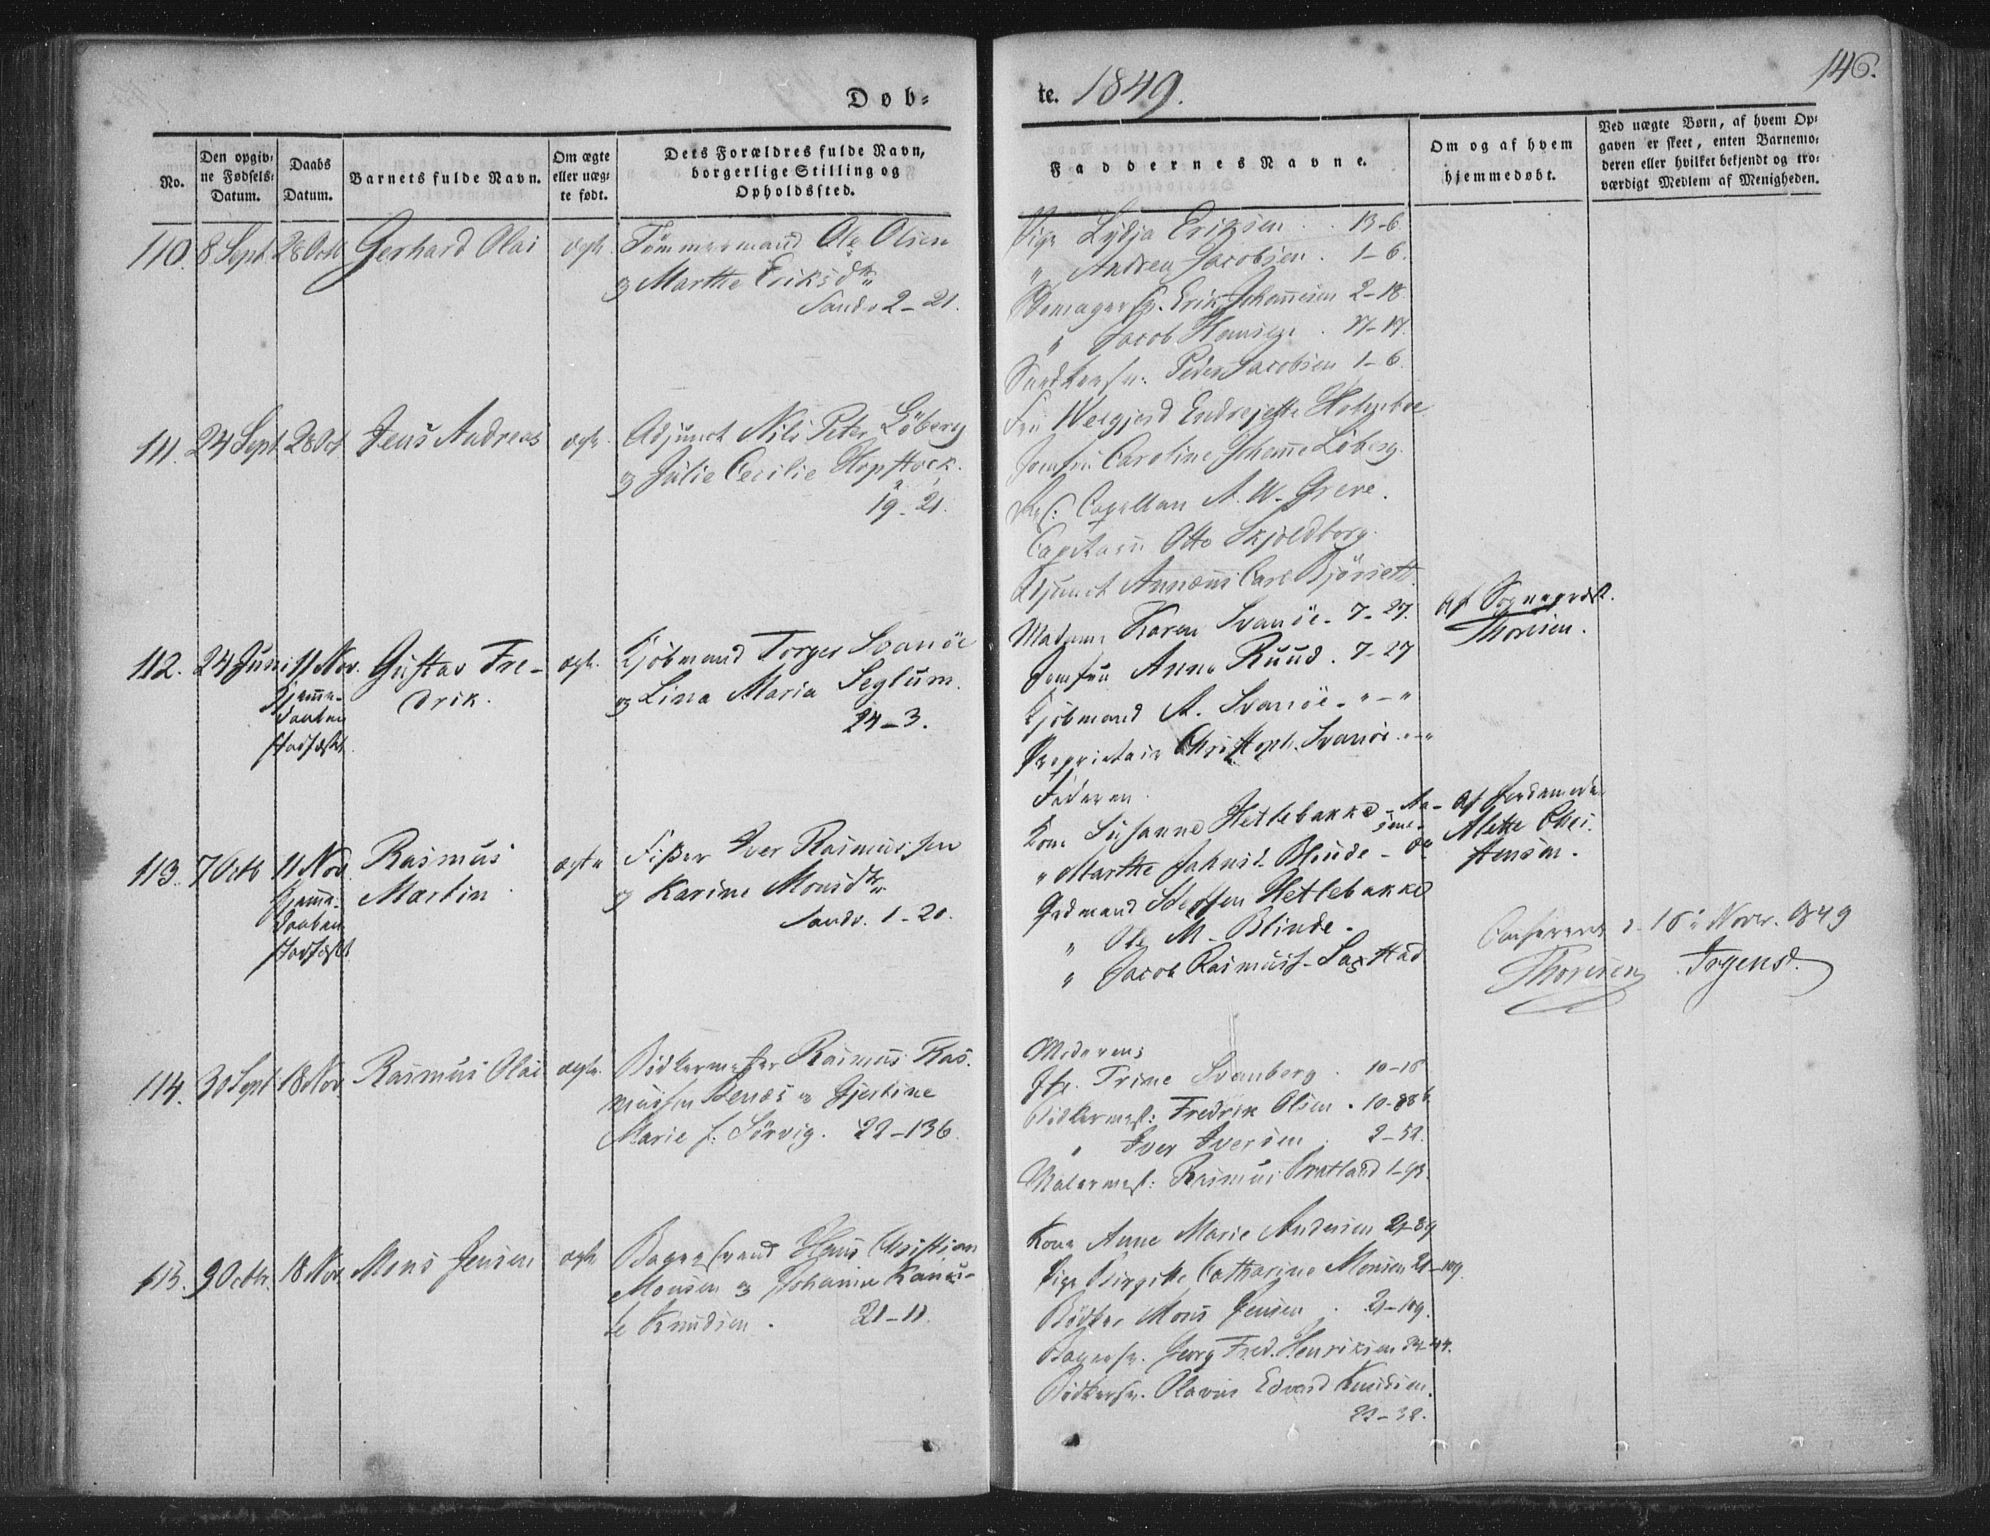 Døb-
te. 1849.
146.
No.
Den opgiv-
ne Fødsels-
Datum.
Daabs
Datum.
Barnets fulde Navn.
Om ægte
eller uæg-
te født.
Dets Forældres fulde Navn,
borgerlige Stilling og
Opholdssted.
Faddernes Navne.
Om og af hvem
hjemmedøbt.
Ved uægte Børn, af hvem Op-
gaven er skeet, enten Barnemo-
deren eller hvilket bekjendt og tro-
værdigt Medlem af Menigheden.
110. 8 Sept. 28 Octb Gerhard Olai ægte
Tømmermand Ole Olsen
og Marthe Eriksdtr
Sandv 2-21.
Pige Lydja Eriksen . 13-6.
" Andrea Jacobsen . 1-6.
Erik Johannesen 2-18
" Jacob Hansen . 17-17.
Peder Jacobsen 1-6.
111. 24 Sept. 28 Oct Jens Andreas ægte
Adjunct Nils Peter Løberg
og Julie Cecilie Hopstock.
19-21.
Fru Welgjerd Endrejette Holmboe
Jomfru Caroline Johanne Løberg.
Res: Capellan A. W. Greve.
Capitain Otto Skjoldborg.
Adjunct Annæus Carl Bjørseth
112. 24 Juni 11 Nov. Gustav Fre-
drik.
Hjemme-
daaben
stadfæstet.
ægte.
Kjøbmand Torger Svanøe
og Lina Maria Seglum.
24-3.
Madame Karen Svanøe - 7-27.
Jomfru Anne Ruud . 7-27
Kjøbmand A. Svanøe - " - "
Proprietair Christoph. Svanøe " - "
Faderen
Af Sognepræst
Thoresen.
113. 7 Octb 11 Nov. Rasmus
Martin.
Hjemme-
daaben
stadfæstet
ægte
Fisker Iver Rasmussen
og Karine Monsdtr
Sandv. 1-20.
Kone Susanne Hetlebakke - Aa-
sene.
" Marthe Johnsd. Blinde - do
Grdmand Steffen Hetlebakke
" Ole M. Blinde.
" Jacob Rasmuss. Saxstad
Af Jordemoder
Alette Chri-
stensen.
Confereret d. 16de Novr. 1849
Thoresen Irgens.
114. 30 Sept 18 Nov. Rasmus Olai ægte.
Bødkermester Rasmus Ras-
mussen Stenæs og Gjertine
Marie f. Sørvig. 22-136.
Moderen;
Jfr. Trine Svanberg . 10-18
Bødkermest: Fredrik Olsen . 10-88 b
" Iver Iversen . 2-52.
Malermest: Rasmus Bratland 1-93.
115. 9 Octbr. 18 Nov. Mons Jensen ægte
Bagersvend Hans Christian
Monsen og Johanne Kanu-
te Knudsen . 21-11.
Kone Anne Marie Andersen 21-89
Pige Birgitte Catharine Monsen 21-109.
Bødker Mons Jensen . 21-109.
Bagersv. Georg Fred. Henriksen 22-44.
Bødkersv. Olavus Edvard Knudsen.
22-32.